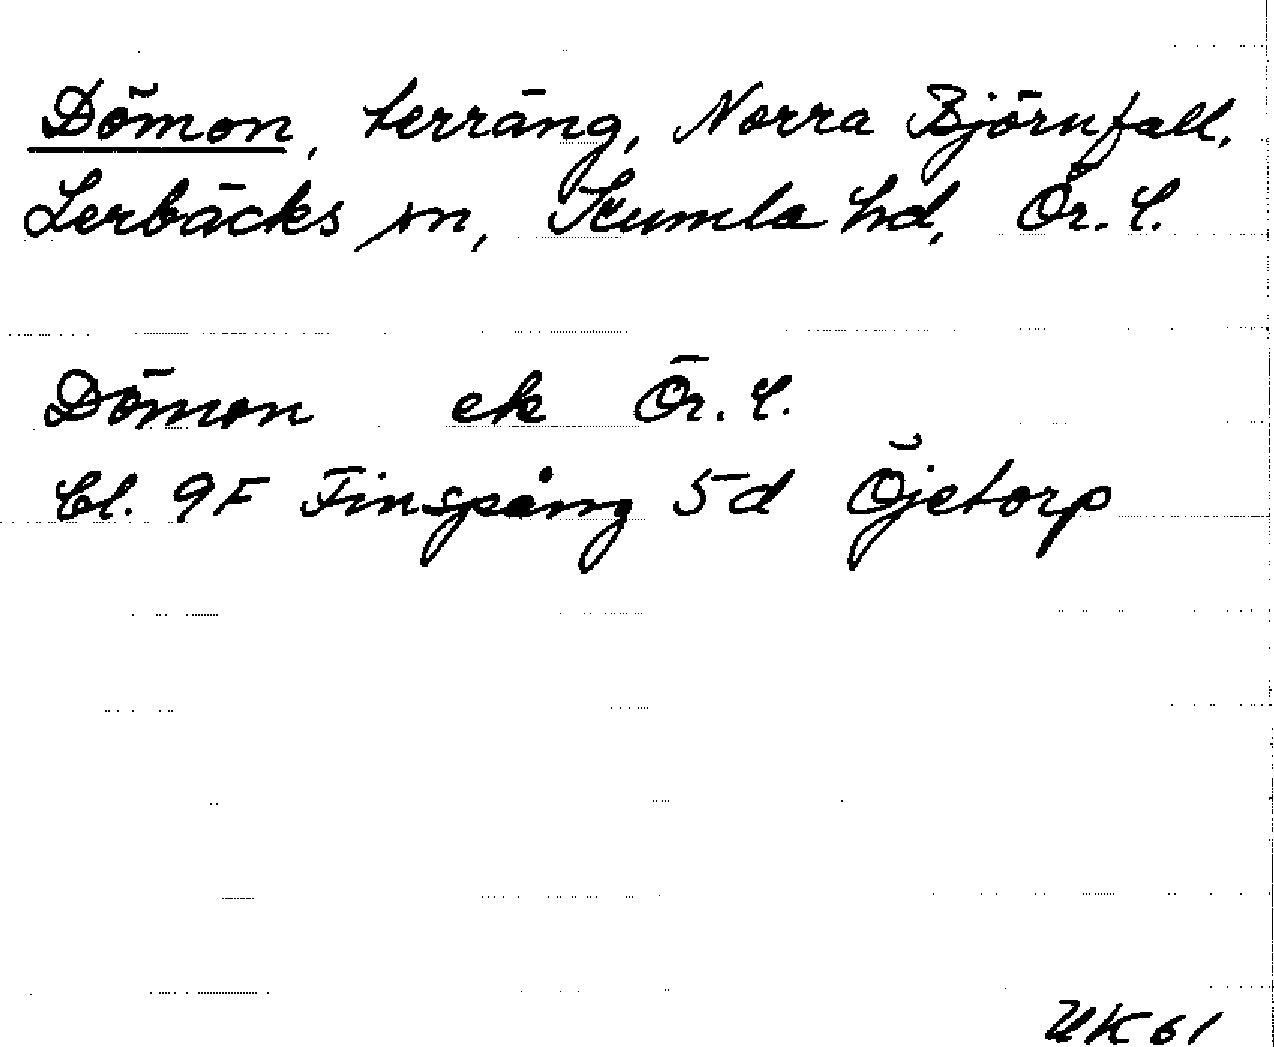 Dömon, terräng, Norra Björnfall.
Lerbäcks sn, Kumla hd, Ör. l.
Dömon ek Ör. l.
Bl. 9F Finspång 5d Öjetorp
UK61